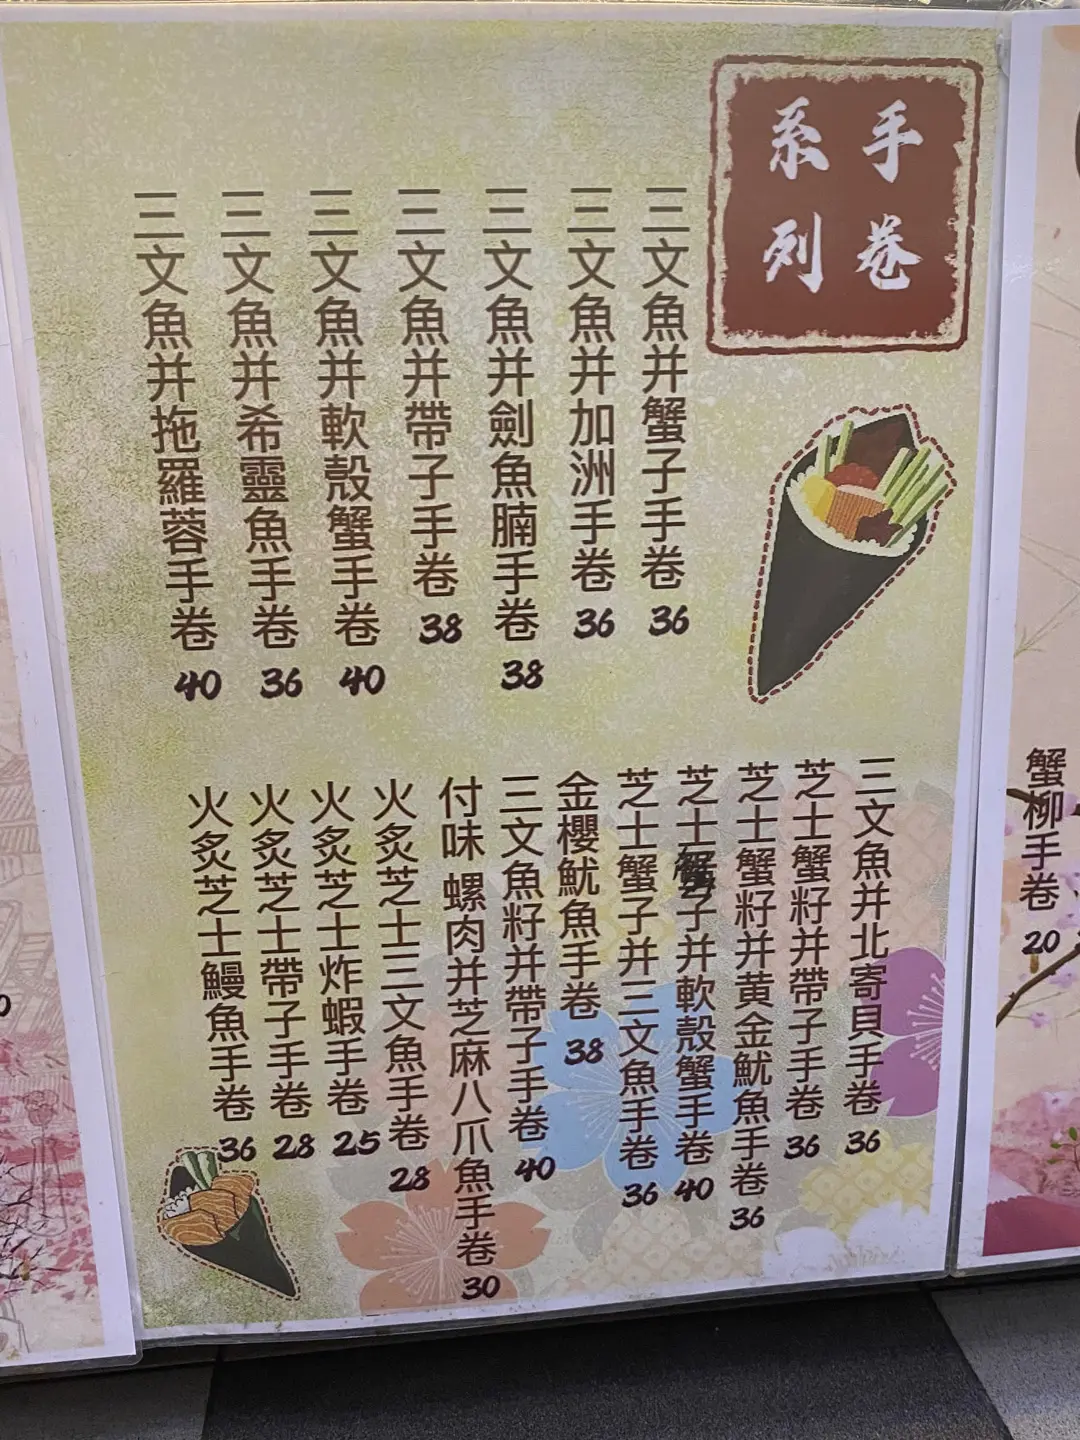 手卷
系列
三文魚并蟹子手卷 36
三文魚并加洲手卷 36
三文魚并劍魚腩手卷 38
三文魚并帶子手卷 38
三文魚并軟殼蟹手卷 40
三文魚并希靈魚手卷 36
三文魚并拖羅蓉手卷 40
三文魚并北寄貝手卷 36
芝士蟹籽并帶子手卷 36
芝士蟹籽并黄金魷魚手卷 36
芝士蟹子并軟殼蟹手卷 40
芝士蟹子并三文魚手卷 36
金櫻魷魚手卷 38
三文魚籽并帶子手卷 40
付味 螺肉并芝麻八爪魚手卷 30
火炙芝士三文魚手卷 28
火炙芝士炸蝦手卷 25
火炙芝士帶子手卷 28
火炙芝士鰻魚手卷 36
蟹柳手卷 20